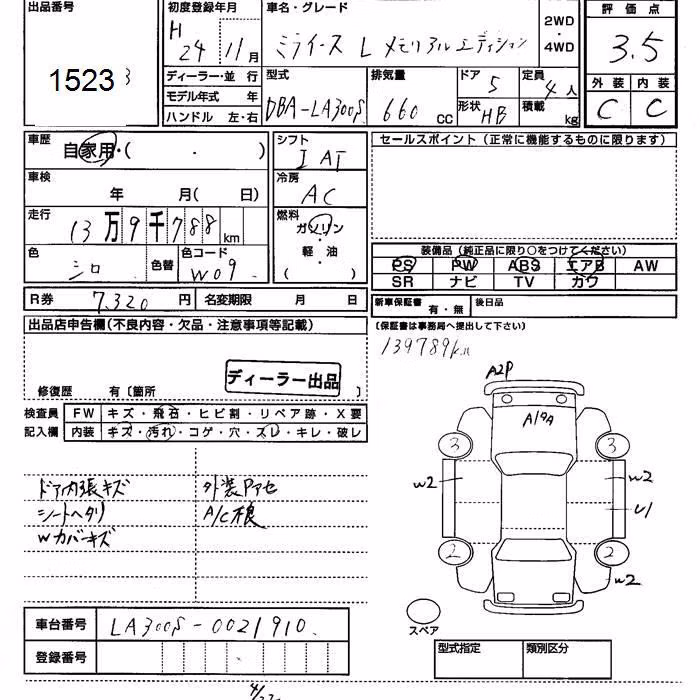 出品番号
1523
初度登録年月
H 24 11月
車名・グレード
ミライース L メモリアルエディション
2WD・4WD
評価点
3.5
ディーラー・並行
モデル年式 年
ハンドル 左・右
型式
DBA-LA300S
排気量
660 CC
ドア
5
形状 HB
定員
4人
積載 kg
外装 内装
C C
車歴
自家用・( ・ )
シフト
I AT
セールスポイント(正常に機能するものに限ります)
車検
年 月( 日)
冷房
AC
走行
13万9千788km
燃料
ガソリン・軽・油
( )
色
シロ
色替
色コード
W09
装備品(純正品に限り○をつけてください)
PS PW ABS エアB AW
SR ナビ TV カワ
R券 7,320円
名変期限 月 日
新車保証書 有・無
後日品
(保証書は事務局へ提出して下さい)
139789km
出品店申告欄(不良内容・欠品・注意事項等記載)
ディーラー出品
修復歴 有〔箇所 〕
検査員記入欄
FW キズ・飛石・ヒビ割・リペア跡・X要
内装 キズ・汚れ・コゲ・穴・スレ・キレ・破レ
A2P
A19A
3 3
W2 W2
U1
2 2
W2
スペア
ドア内張キズ
外装Pアセ
シートヘタリ
Wカバーキズ
車台番号 LA300S-0021910
登録番号
型式指定
類別区分